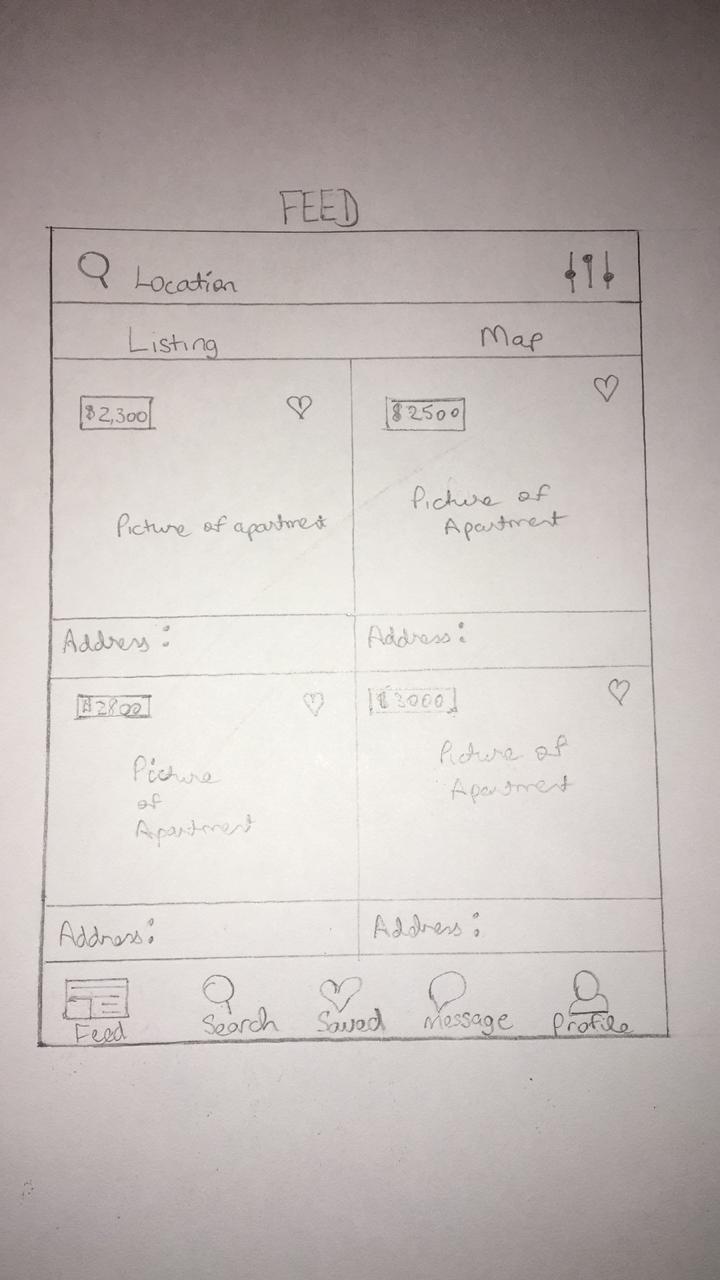 FEED
Location
Listing Map
$2,300 $2500
Picture of apartment
Picture of
Apartment
Address: Address:
$2800 $3000
Picture
of
Apartment
Picture of
Apartment
Address: Address:
Feed Search Saved Message Profile